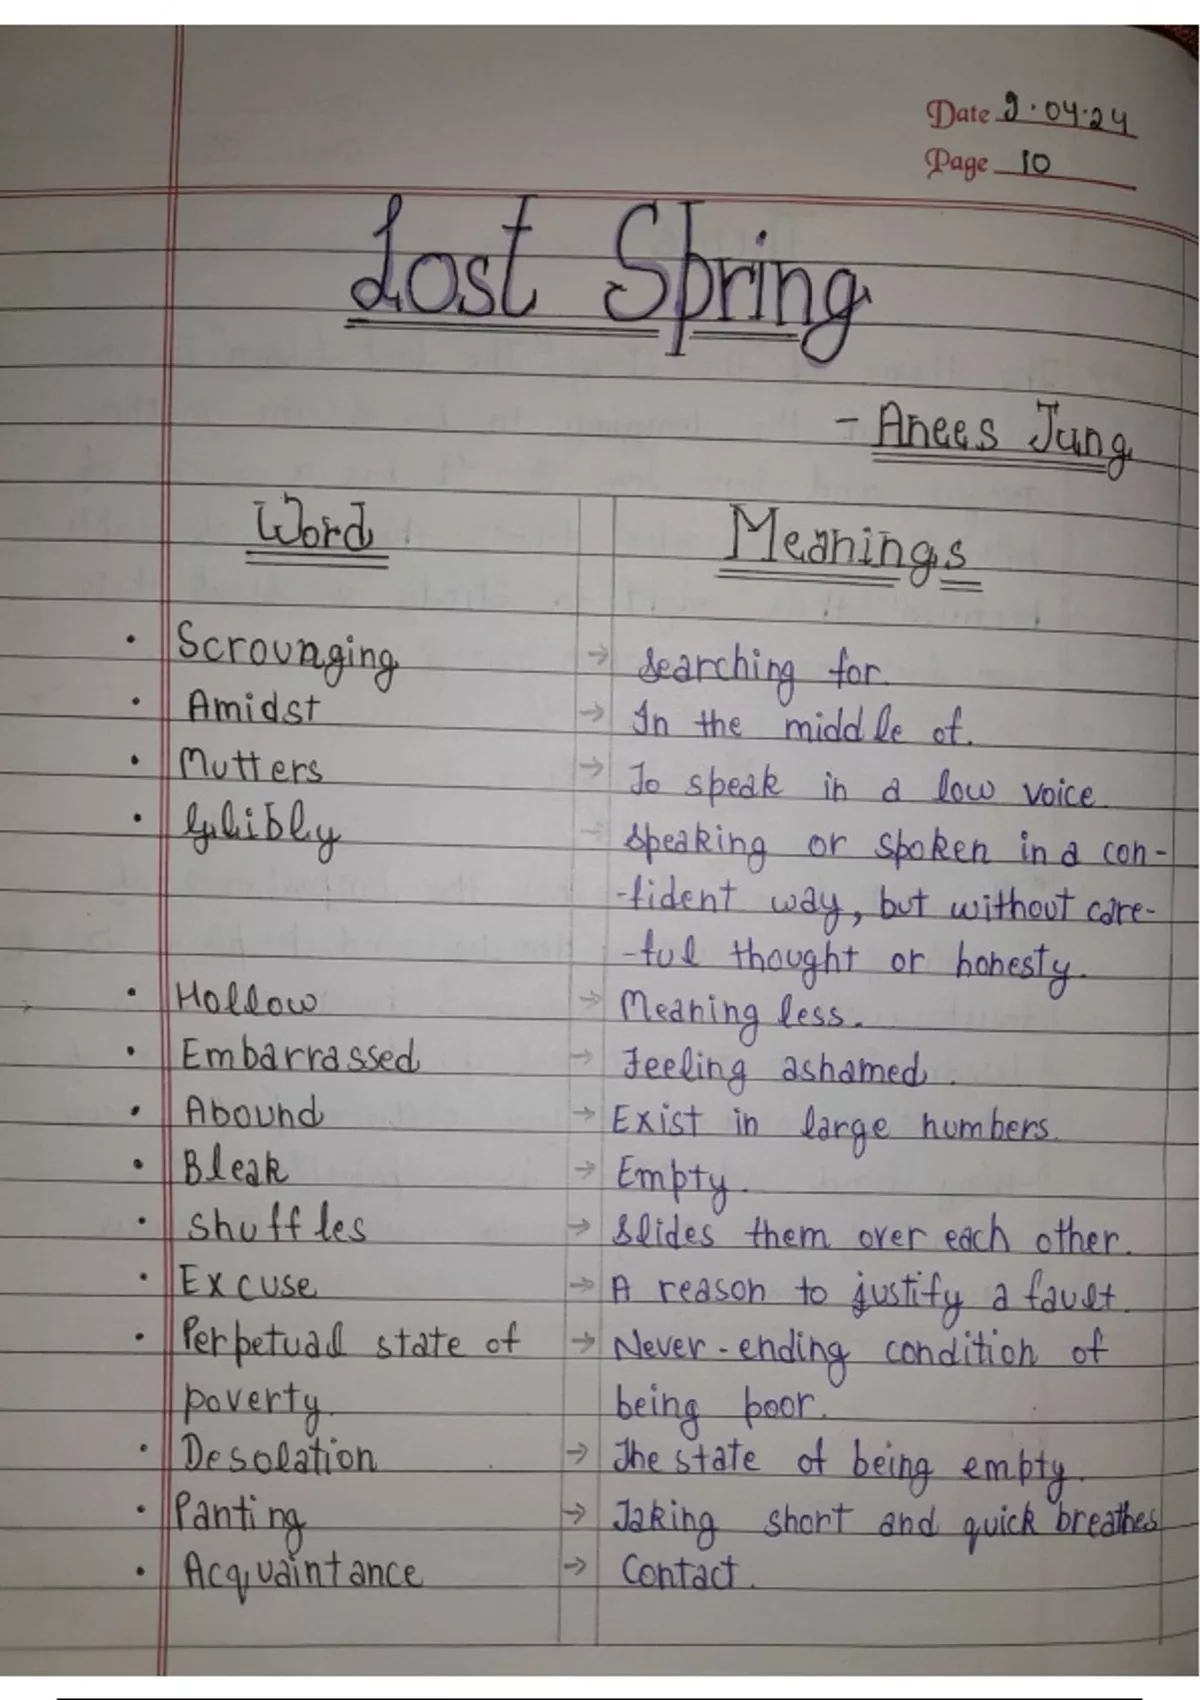 Date 9.04.24
Page 10
Lost Spring
- Anees Jung
Word Meanings
• Scrounging → Searching for.
• Amidst → In the middle of.
• Mutters → To speak in a low voice.
• Glibly → Speaking or spoken in a con-
-fident way, but without care-
-ful thought or honesty.
• Hollow → Meaning less.
• Embarrassed → Feeling ashamed.
• Abound → Exist in large numbers.
• Bleak → Empty.
• Shuffles → Slides them over each other.
• Excuse → A reason to justify a fault.
• Perpetual state of → Never-ending condition of
poverty. being poor.
• Desolation → The state of being empty.
• Panting → Taking short and quick breathes
• Acquaintance → Contact.